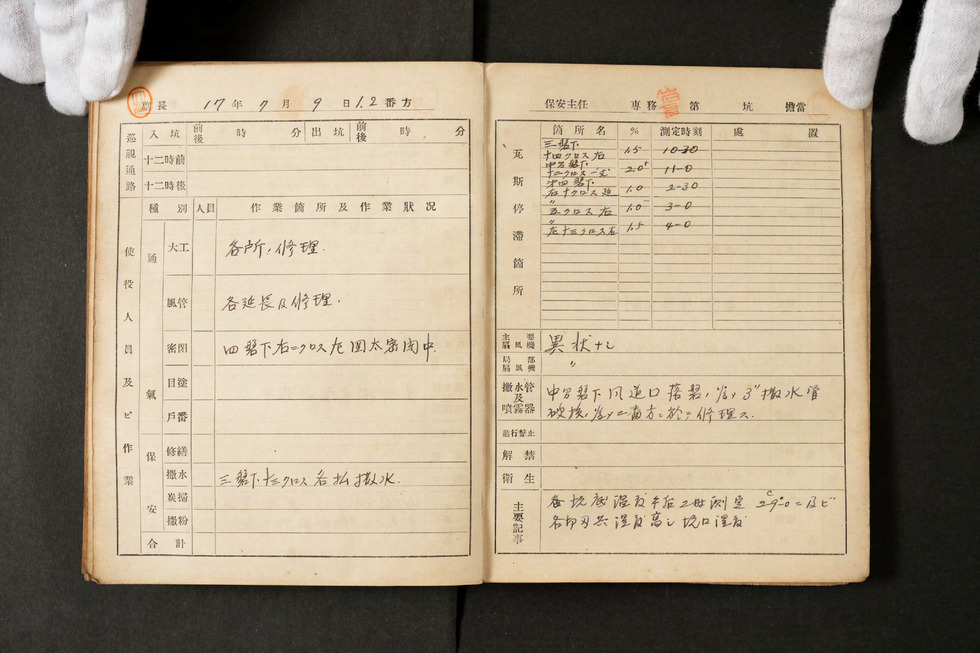 長 17年7月9日1.2番方
巡視通路
入坑 前後 時 分 出坑 前後 時 分
十二時前
十二時後
使役人員及ビ作業
種別 人員 作業箇所及作業狀況
通氣
大工 各所ノ修理.
風管 各延長及修理.
密閉 四盤下右二クロス 密閉中
目塗
戶番
保安
修繕
撒水 三盤下十三クロス各払撒水.
炭掃
撒粉
合計
保安主任 專務 第 坑 擔當
瓦斯停滯箇所
箇所名 % 測定時刻 處置
三盤下
十四クロス右 1.5 10-30
中台盤下
十二クロス 2.0 11-0
第四盤下
右十クロス 1.0 2-30
〃
五クロス右 1.0 3-0
〃
左十三クロス右 1.5 4-0
主要扇風機 異狀ナシ
局部扇風機 〃
撒水管及噴霧器 中台盤下風道口落盤ノ為メ3"撒水管
破損ノ為メ二番方ニ於テ修理ス.
進行禁止
解禁
衛生
主要記事 各坑底温度午后2時測定 29°-0ニ及ビ
各切羽共温度高シ坑口温度